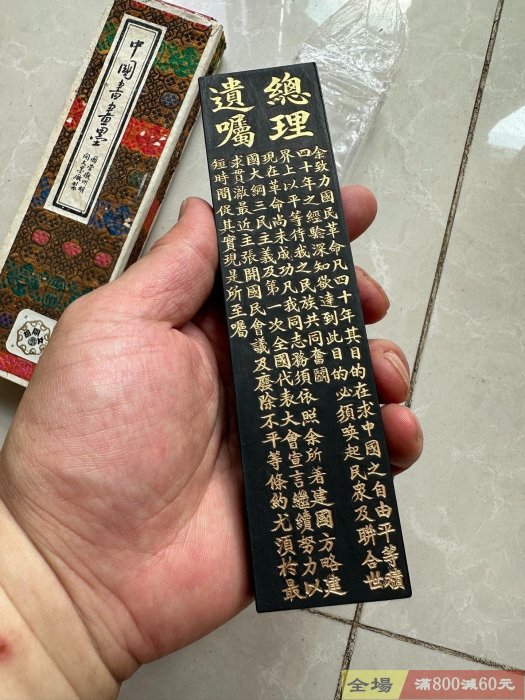 總理
遺囑
余致力國民革命凡四十年其目的在求中國之自由平等積
四十年之經驗深知欲達到此目的必須喚起民眾及聯合世
界上以平等待我之民族共同奮鬭
現在革命尚未成功凡我同志務須依照余所著建國方略建
國大綱三民主義及第一次全國代表大會宣言繼續努力以
求貫澈最近主張開國民會議及廢除不平等條約尤須於最
短時間促其實現是所至囑
中國書畫墨
全場
滿800減60元